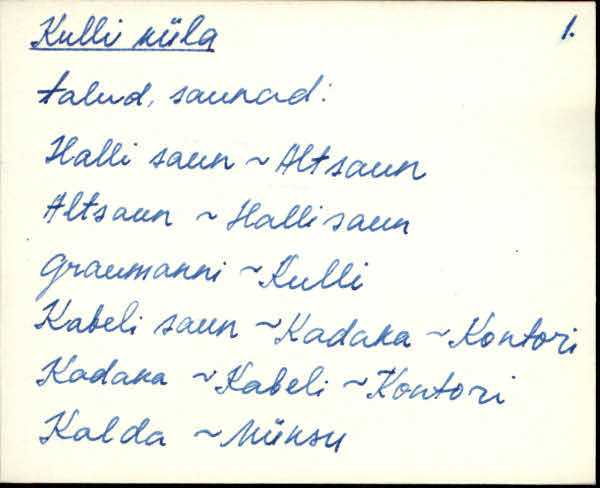 Kulli küla 1.
talud, saunad:
Halli saun ~ Altsaun
Altsaun ~ Hallisaun
Graumanni ~ Kulli
Kabeli saun ~ Kadaka ~ Kontori
Kadaka ~ Kabeli ~ Kontori
Kalda ~ Müksu